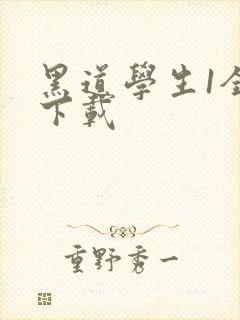 黑道學生1全
下載
重野秀一